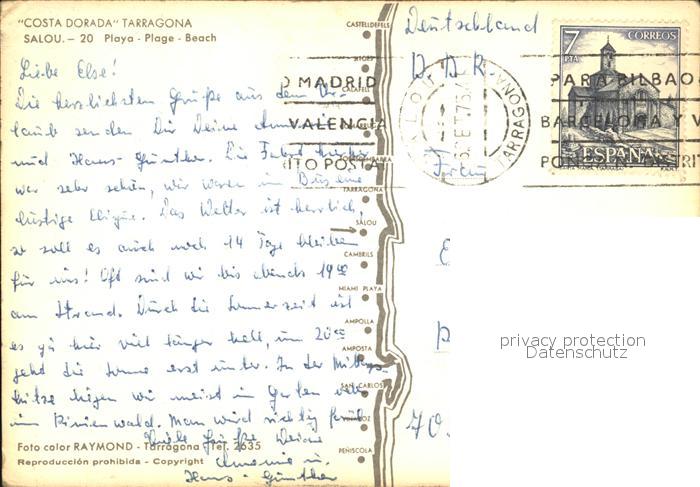 "COSTA DORADA" TARRAGONA
SALOU. – 20 Playa - Plage - Beach
Liebe Else!
Die herzlichsten Grüße aus dem Ur-
laub senden Dir Deine
und Hans-Günther. Die Fahrt hierher
war sehr schön, wir waren im Bus eine
lustige Clique. Das Wetter ist herrlich,
so soll es auch noch 14 Tage bleiben
für uns! Oft sind wir bis abends 19⁰⁰
am Strand. Durch die Sommerzeit ist
es ja hier viel länger hell, um 20⁰⁰
geht die Sonne erst unter. In der Mittags-
hitze liegen wir meist im Garten oder
im Pinienwald. Man wird richtig faul.
Viele Grüße Deine
u.
Hans-Günther
Foto color RAYMOND - Tarragona - Tel. 2635
Reproducción prohibida - Copyright
CASTELLDEFELS
SITGES
CALAFELL
TORREDEMBARRA
TARRAGONA
SALOU
CAMBRILS
MIAMI PLAYA
AMPOLLA
AMPOSTA
SAN CARLOS
VINAROZ
PEÑISCOLA
Deutschland
D. D. R.
Frau
MADRID
VALENCIA
ITO POSTA
SALOU
SET.75
TARRAGONA
PARA BILBAO
BARCELONA Y V
PON EL DISTRIT
7 PTA
CORREOS
ESPAÑA
70
privacy protection
Datenschutz